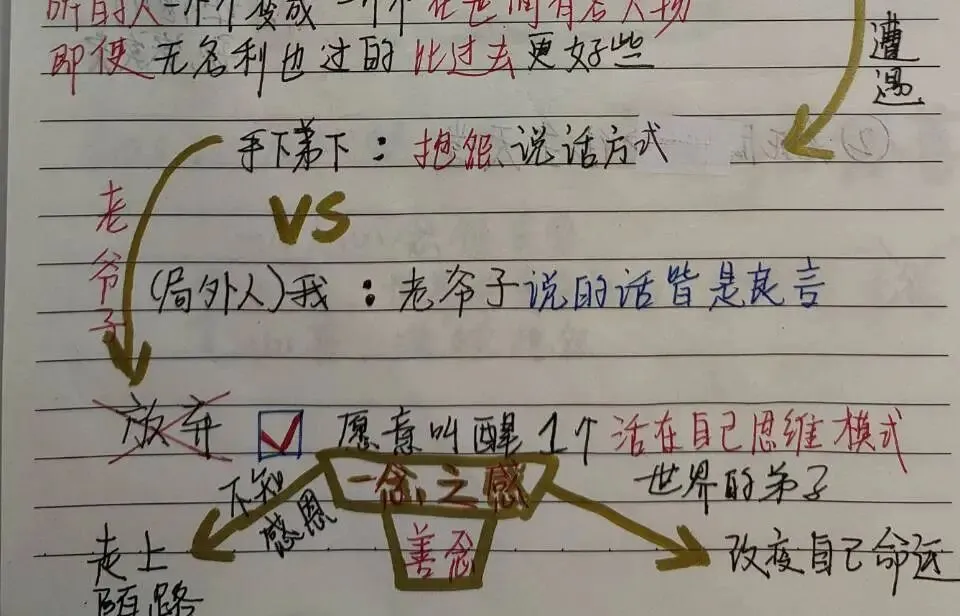 所有的人一个个变成一个个在世间有名人物
即使无名利也过的比过去更好些
遭遇
手下弟下：抱怨、说话方式
VS
老爷子
(局外人)我：老爷子说的话皆是良言
放弃 ☑ 愿意叫醒1个活在自己思维模式
世界的弟子
一念之感
不知感恩
善念
走上陌路
改变自己命运